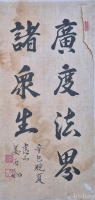 廣度法界
諸眾生
辛巳晚夏